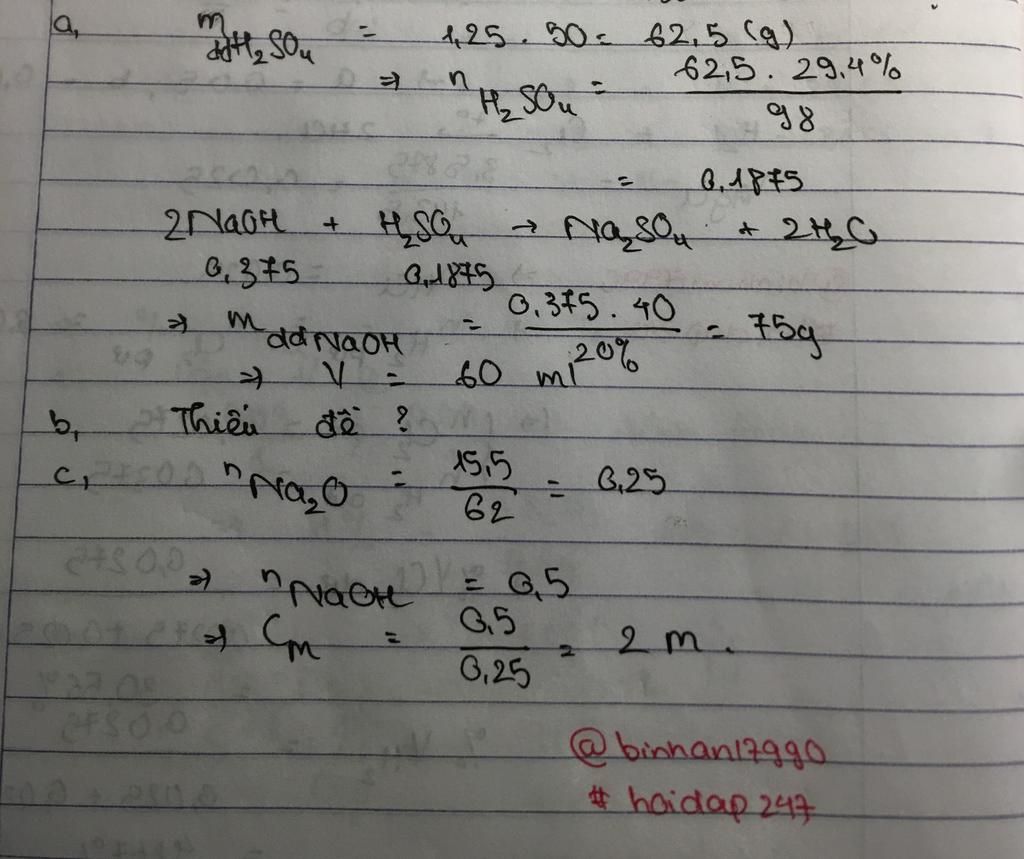 a, mddH₂SO₄ = 1,25 . 50 = 62,5 (g)
⇒ nH₂SO₄ = (62,5 . 29.4%)/98
= 0,1875
2NaOH + H₂SO₄ → Na₂SO₄ + 2H₂O
0,375 0,1875
⇒ mddNaOH = (0,375 . 40)/20% = 75g
⇒ V = 60 ml
b, Thiếu đề ?
c, nNa₂O = 15,5/62 = 0,25
⇒ nNaOH = 0,5
⇒ Cm = 0,5/0,25 = 2 M.
@binhan17990
# hoidap247